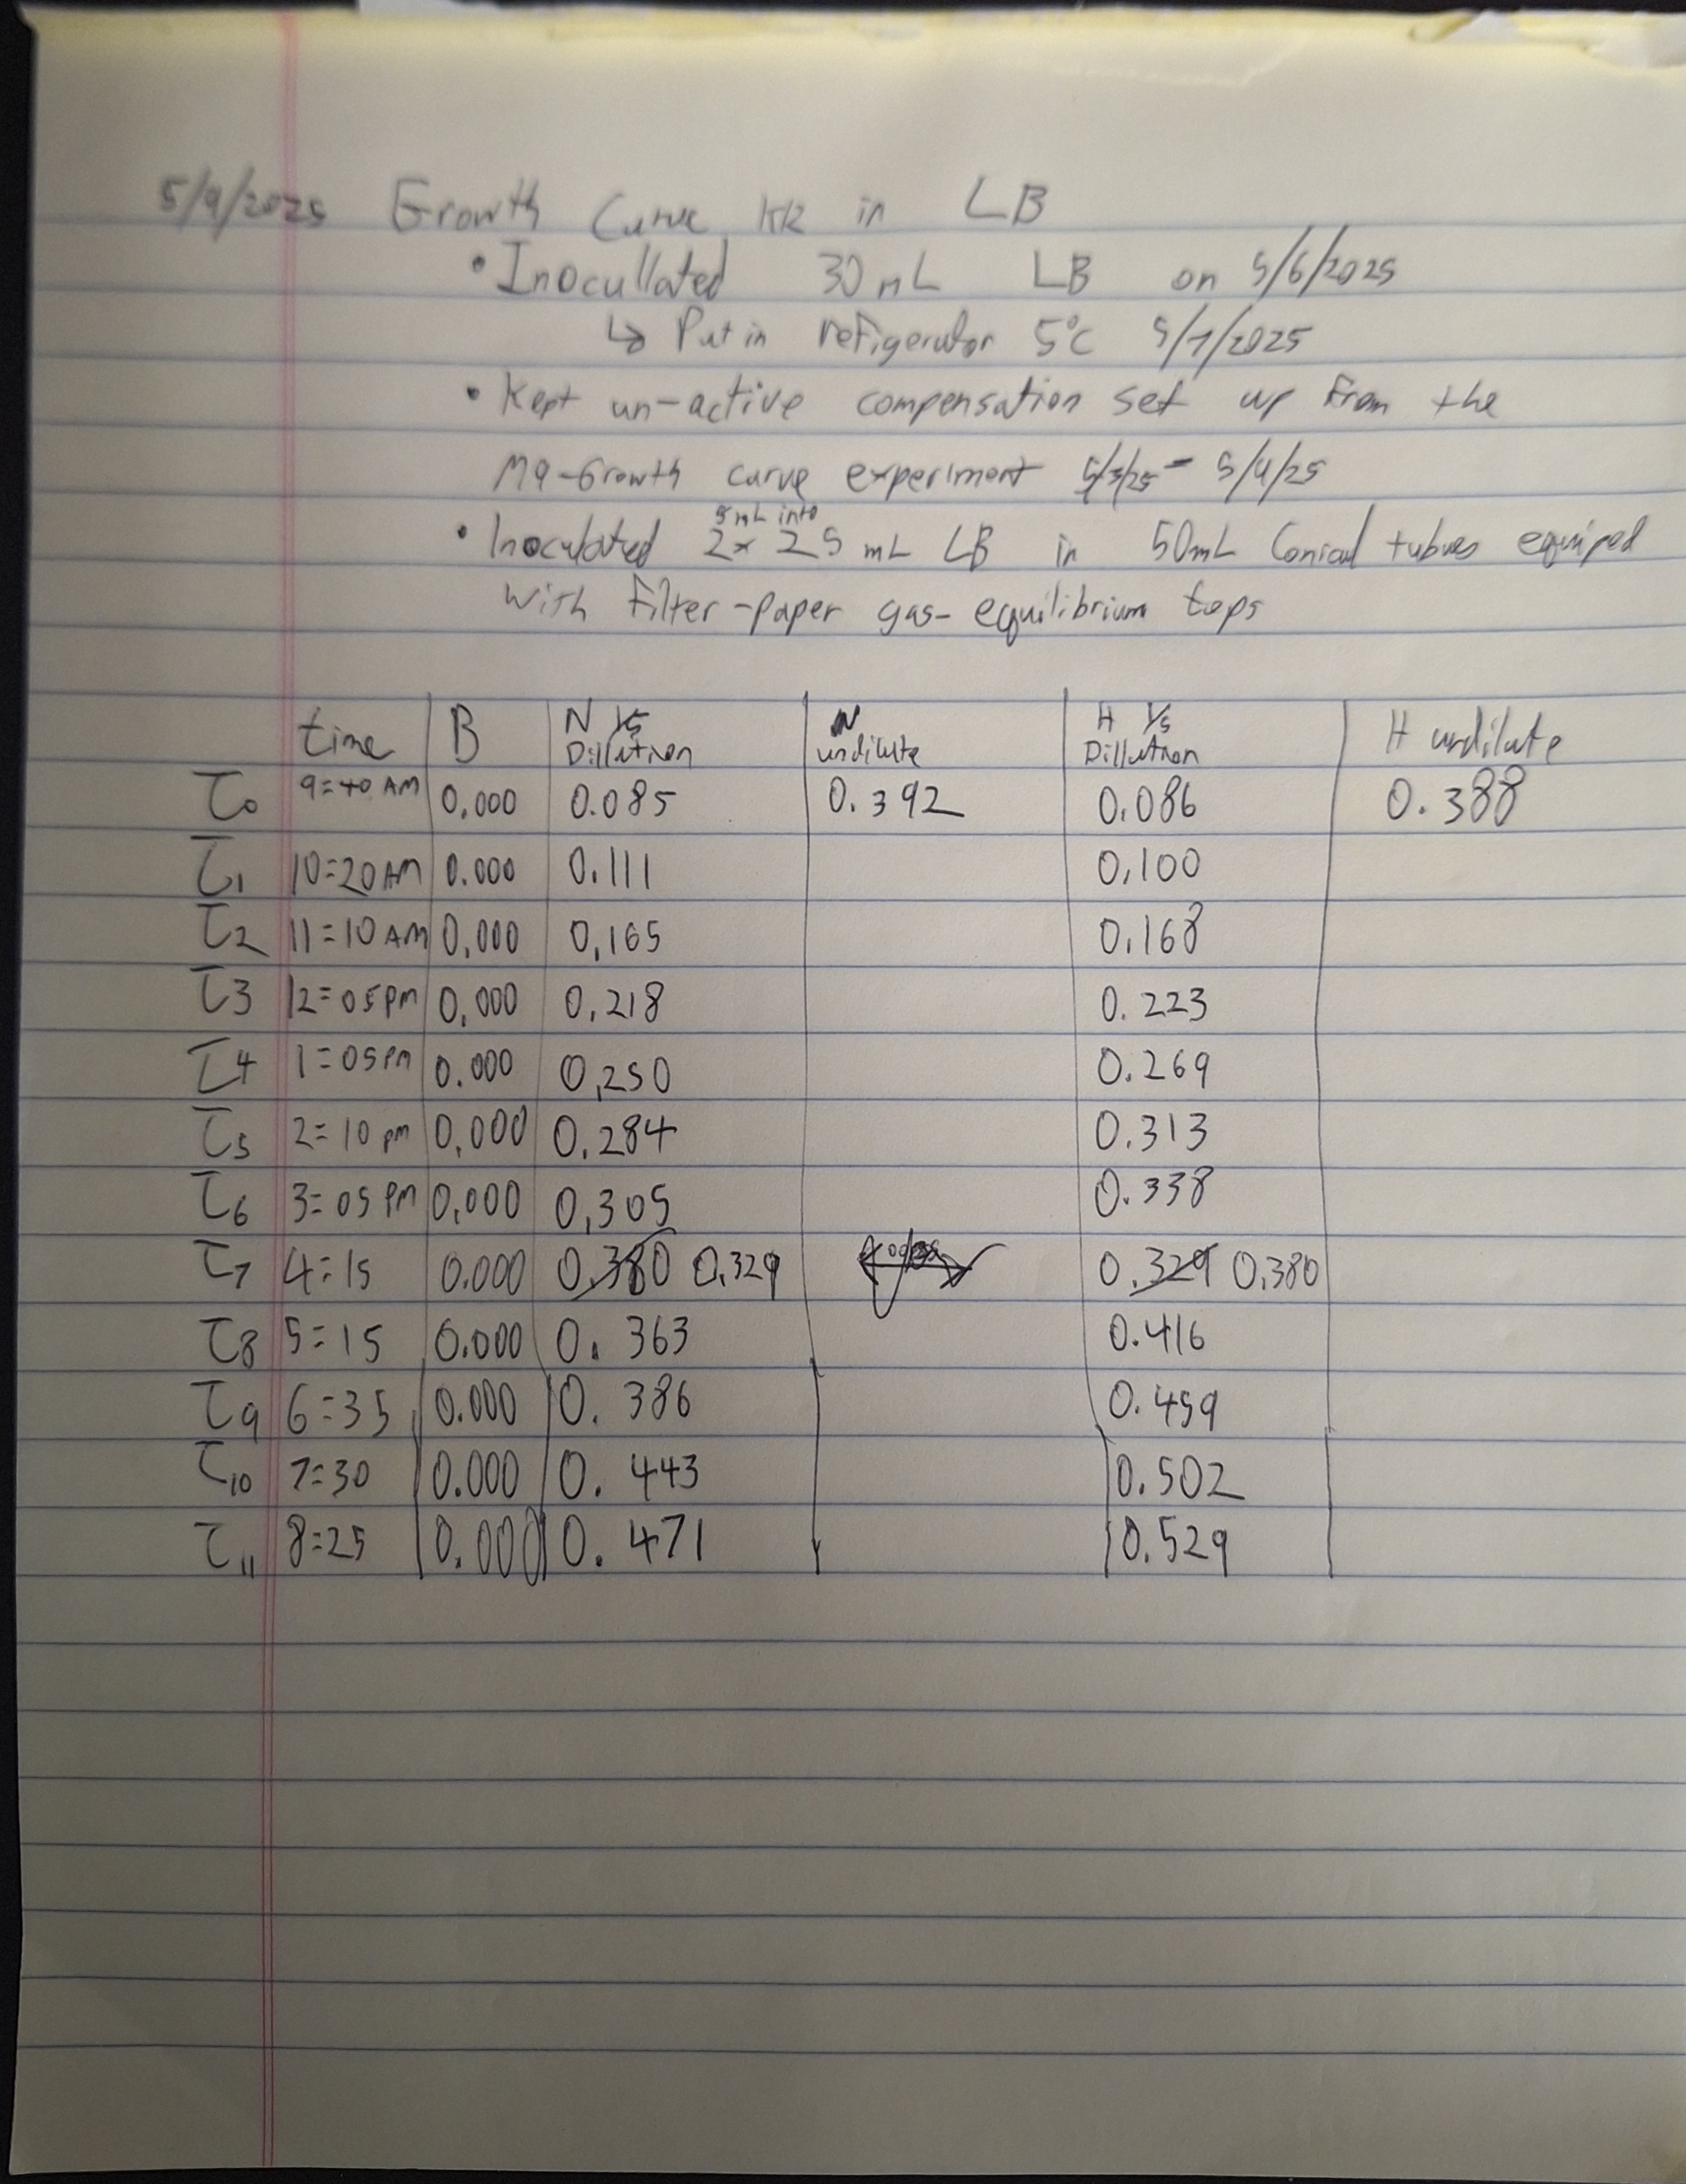 5/9/2025 Growth Curve HR in LB
• Inocullated 30 mL LB on 5/6/2025
↳ Put in refigerator 5°C 5/7/2025
• Kept un-active compensation set up from the
M9-Growth curve experiment 5/3/25 - 5/4/25
5 mL into
• Inoculated 2x 25 mL LB in 50mL Conical tubues equiped
with filter-paper gas-equilibrium tops
time B N 1/5 Dillution N undilute H 1/5 Dillution H undilute
T0 9:40 AM 0.000 0.085 0.392 0.086 0.388
T1 10:20 AM 0.000 0.111 0.100
T2 11:10 AM 0.000 0.165 0.168
T3 12:05 PM 0.000 0.218 0.223
T4 1:05 PM 0.000 0.250 0.269
T5 2:10 pm 0.000 0.284 0.313
T6 3:05 PM 0.000 0.305 0.338
T7 4:15 0.000 0.380 0.329 0.329 0.380
T8 5:15 0.000 0.363 0.416
T9 6:35 0.000 0.386 0.459
T10 7:30 0.000 0.443 0.502
T11 8:25 0.000 0.471 0.529